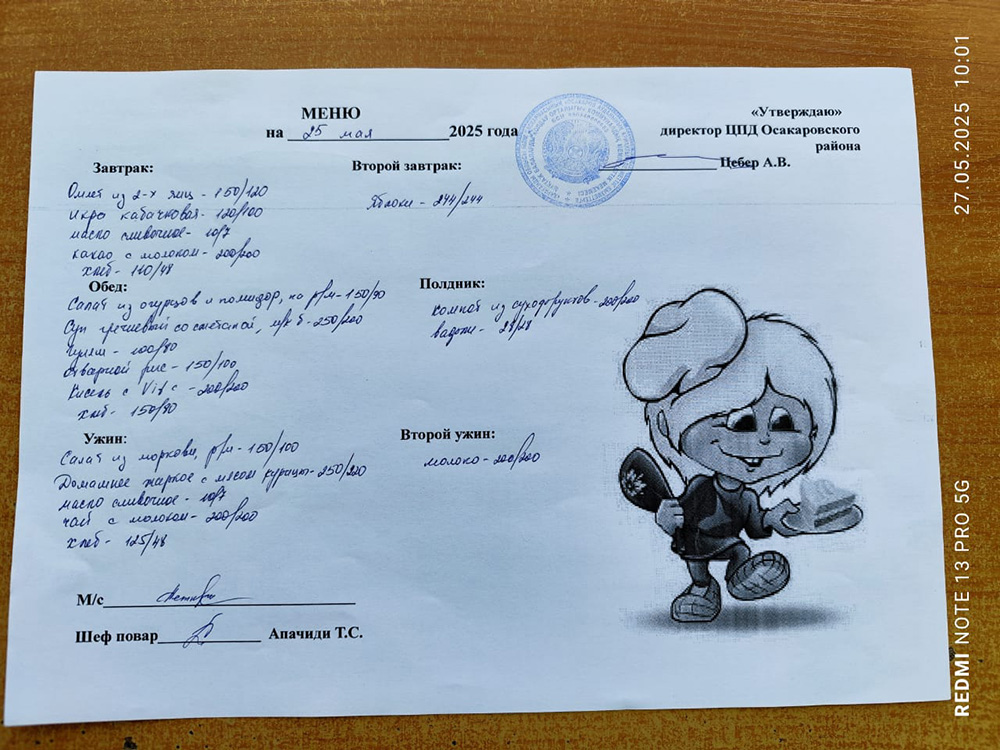 МЕНЮ
на 25 мая 2025 года
«Утверждаю»
директор ЦПД Осакаровского
района
Цебер А.В.
Завтрак:
Омлет из 2-х яиц - 150/120
Икра кабачковая - 120/100
масло сливочное - 10/7
какао с молоком - 200/200
хлеб - 110/48
Второй завтрак:
Яблоки - 244/244
Обед:
Салат из огурцов и помидор, на р/м - 150/90
Суп гречневый со сметаной, м/к б - 250/200
Гуляш - 100/80
отварной рис - 150/100
Кисель с Vit c - 200/200
хлеб - 150/90
Полдник:
компот из сухофруктов - 200/200
28/28
Ужин:
Салат из моркови, р/м - 150/100
Домашнее жаркое с мясом курицы - 250/200
масло сливочное - 10/7
чай с молоком - 200/200
хлеб - 125/48
Второй ужин:
молоко - 200/200
М/с
Шеф повар Апачиди Т.С.
27.05.2025 10:01
REDMI NOTE 13 PRO 5G